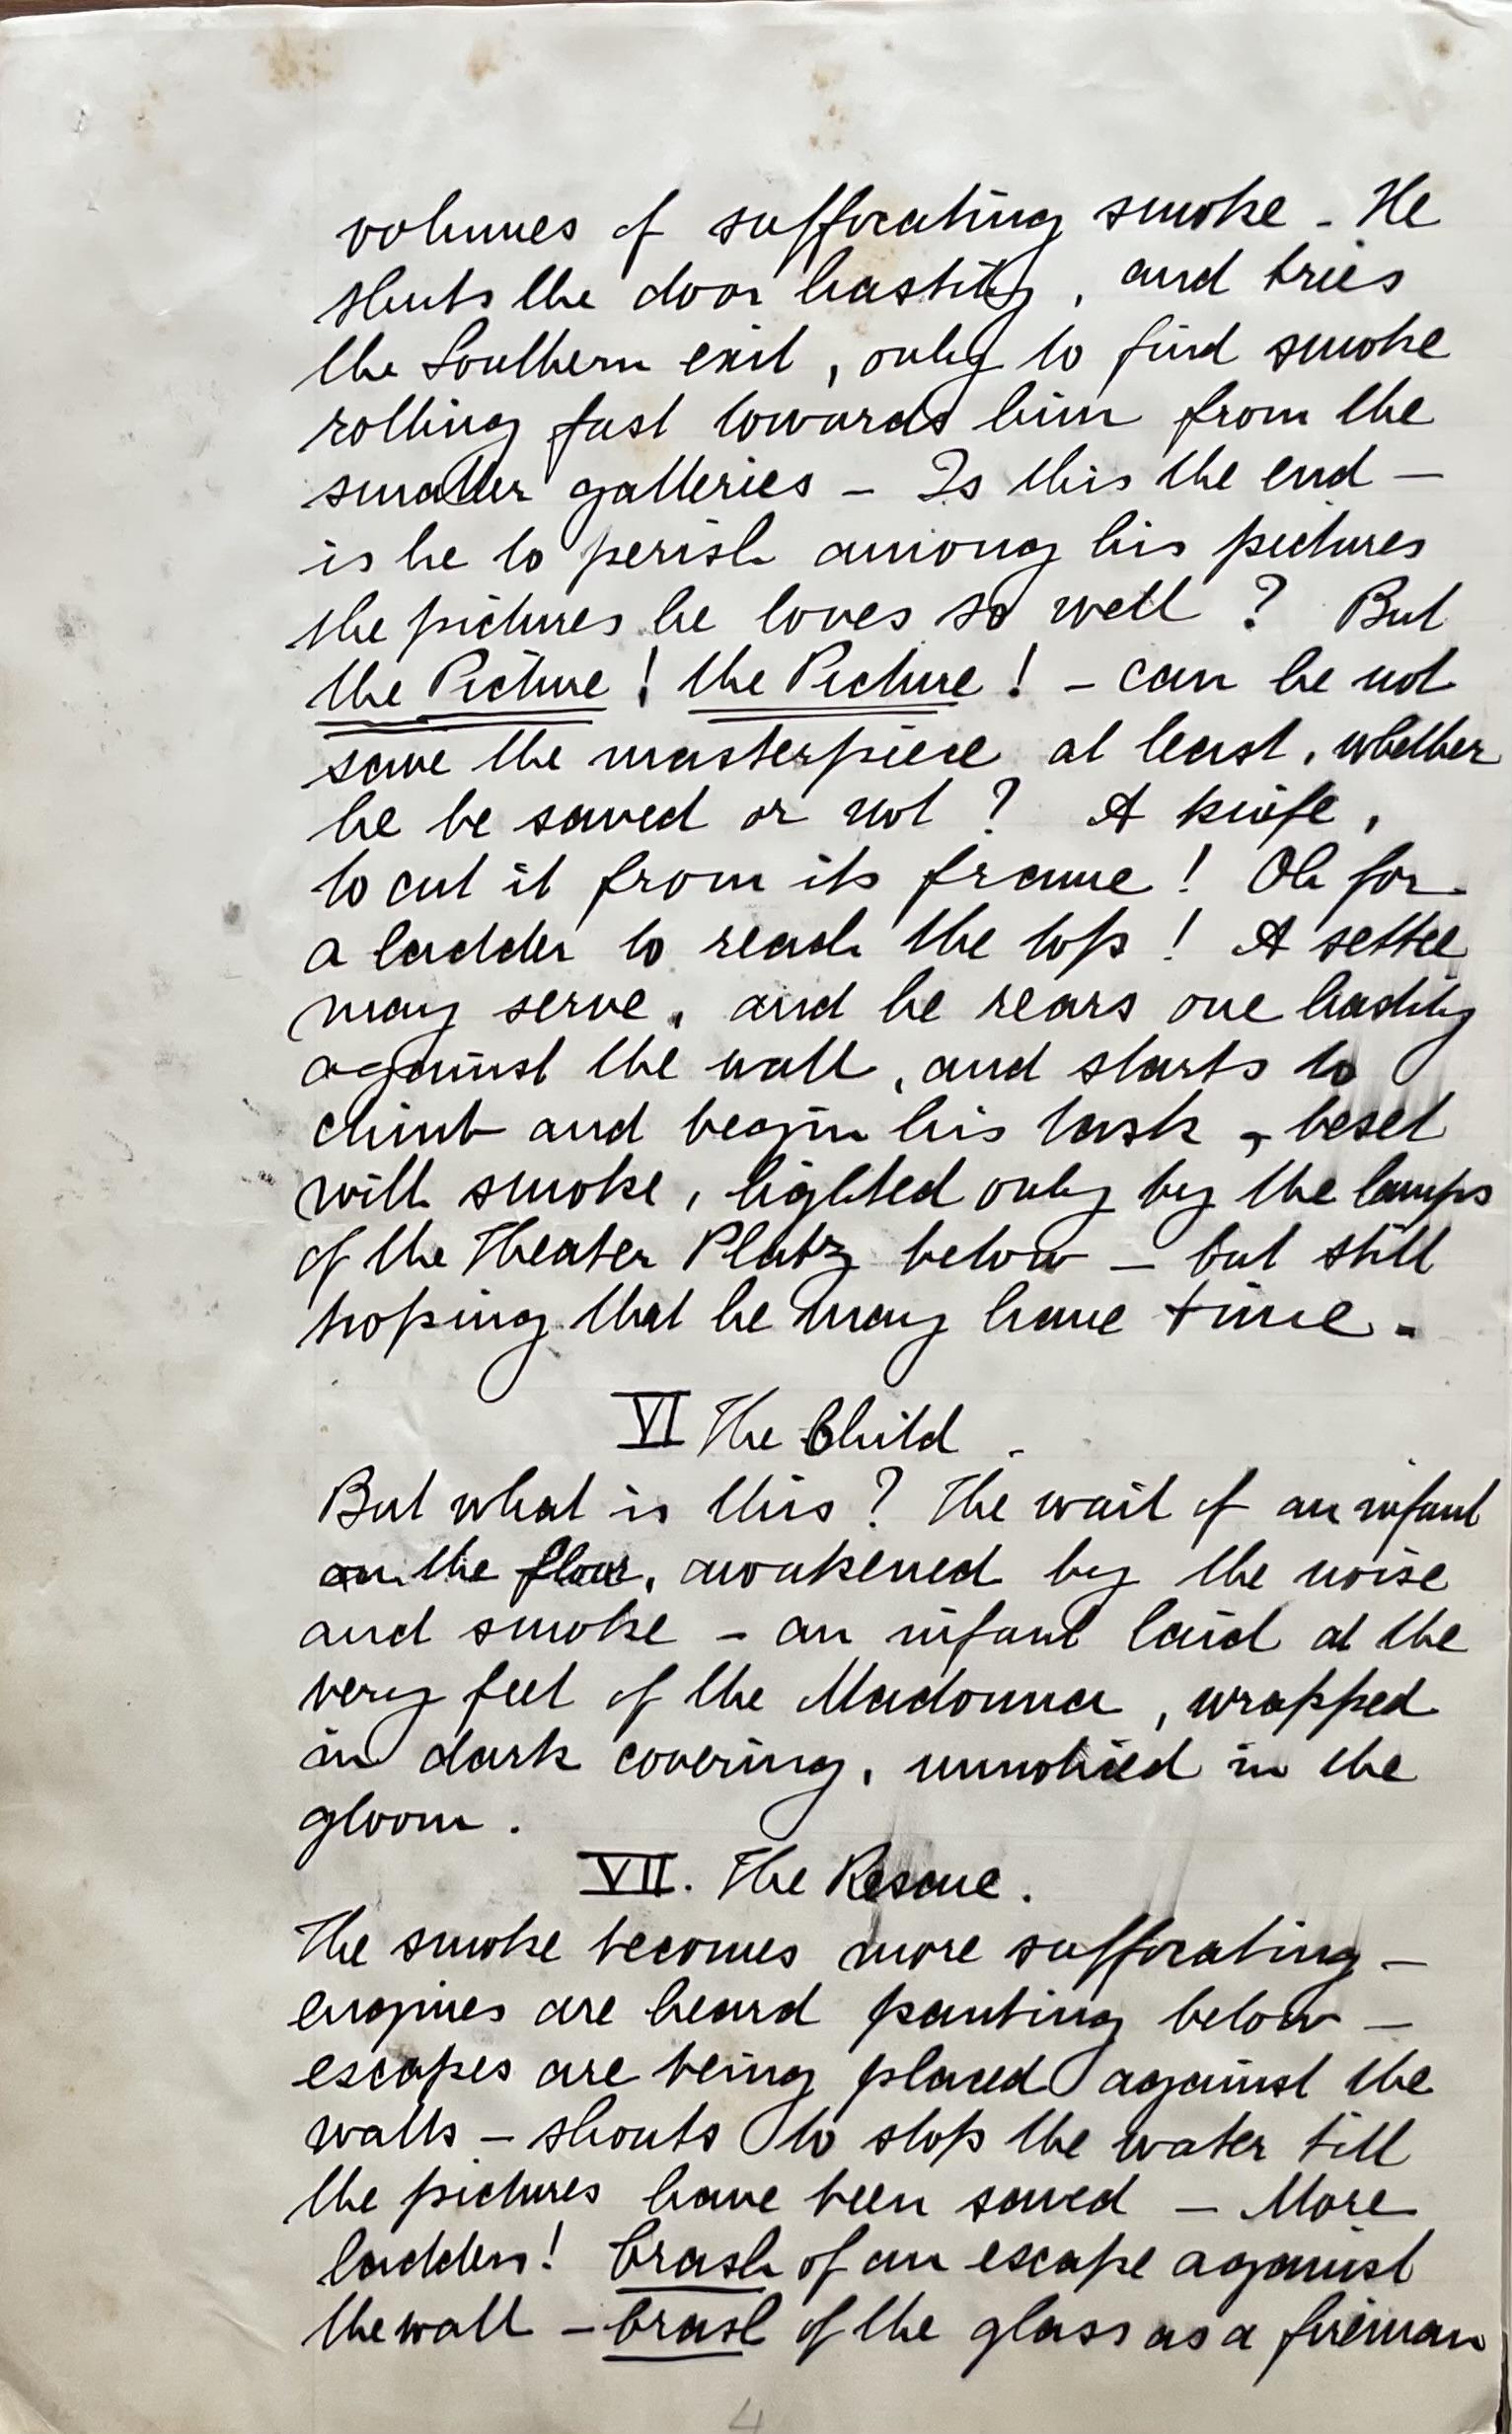 volumes of suffocating smoke - He
shuts the door hastily, and tries
the Southern exit, only to find smoke
rolling fast towards him from the
smaller galleries - Is this the end -
is he to perish among his pictures
the pictures he loves so well ? But
the Picture ! the Picture ! - can he not
save the masterpiece at least, whether
he be saved or not ? A knife,
to cut it from its frame ! Oh for
a ladder to reach the top ! A settee
may serve, and he rears one hastily
against the wall, and starts to
climb and begin his task, beset
with smoke, lighted only by the lamps
of the Theater Platz below - but still
hoping that he may have time.
VI The Child.
But what is this ? The wail of an infant
on the floor, awakened by the noise
and smoke - an infant laid at the
very feet of the Madonna, wrapped
in dark covering, unnoticed in the
gloom.
VII. The Rescue.
The smoke becomes more suffocating -
engines are heard panting below -
escapes are being placed against the
walls - shouts to stop the water till
the pictures have been saved - More
ladders! Crash of an escape against
the wall - Crash of the glass as a fireman
4